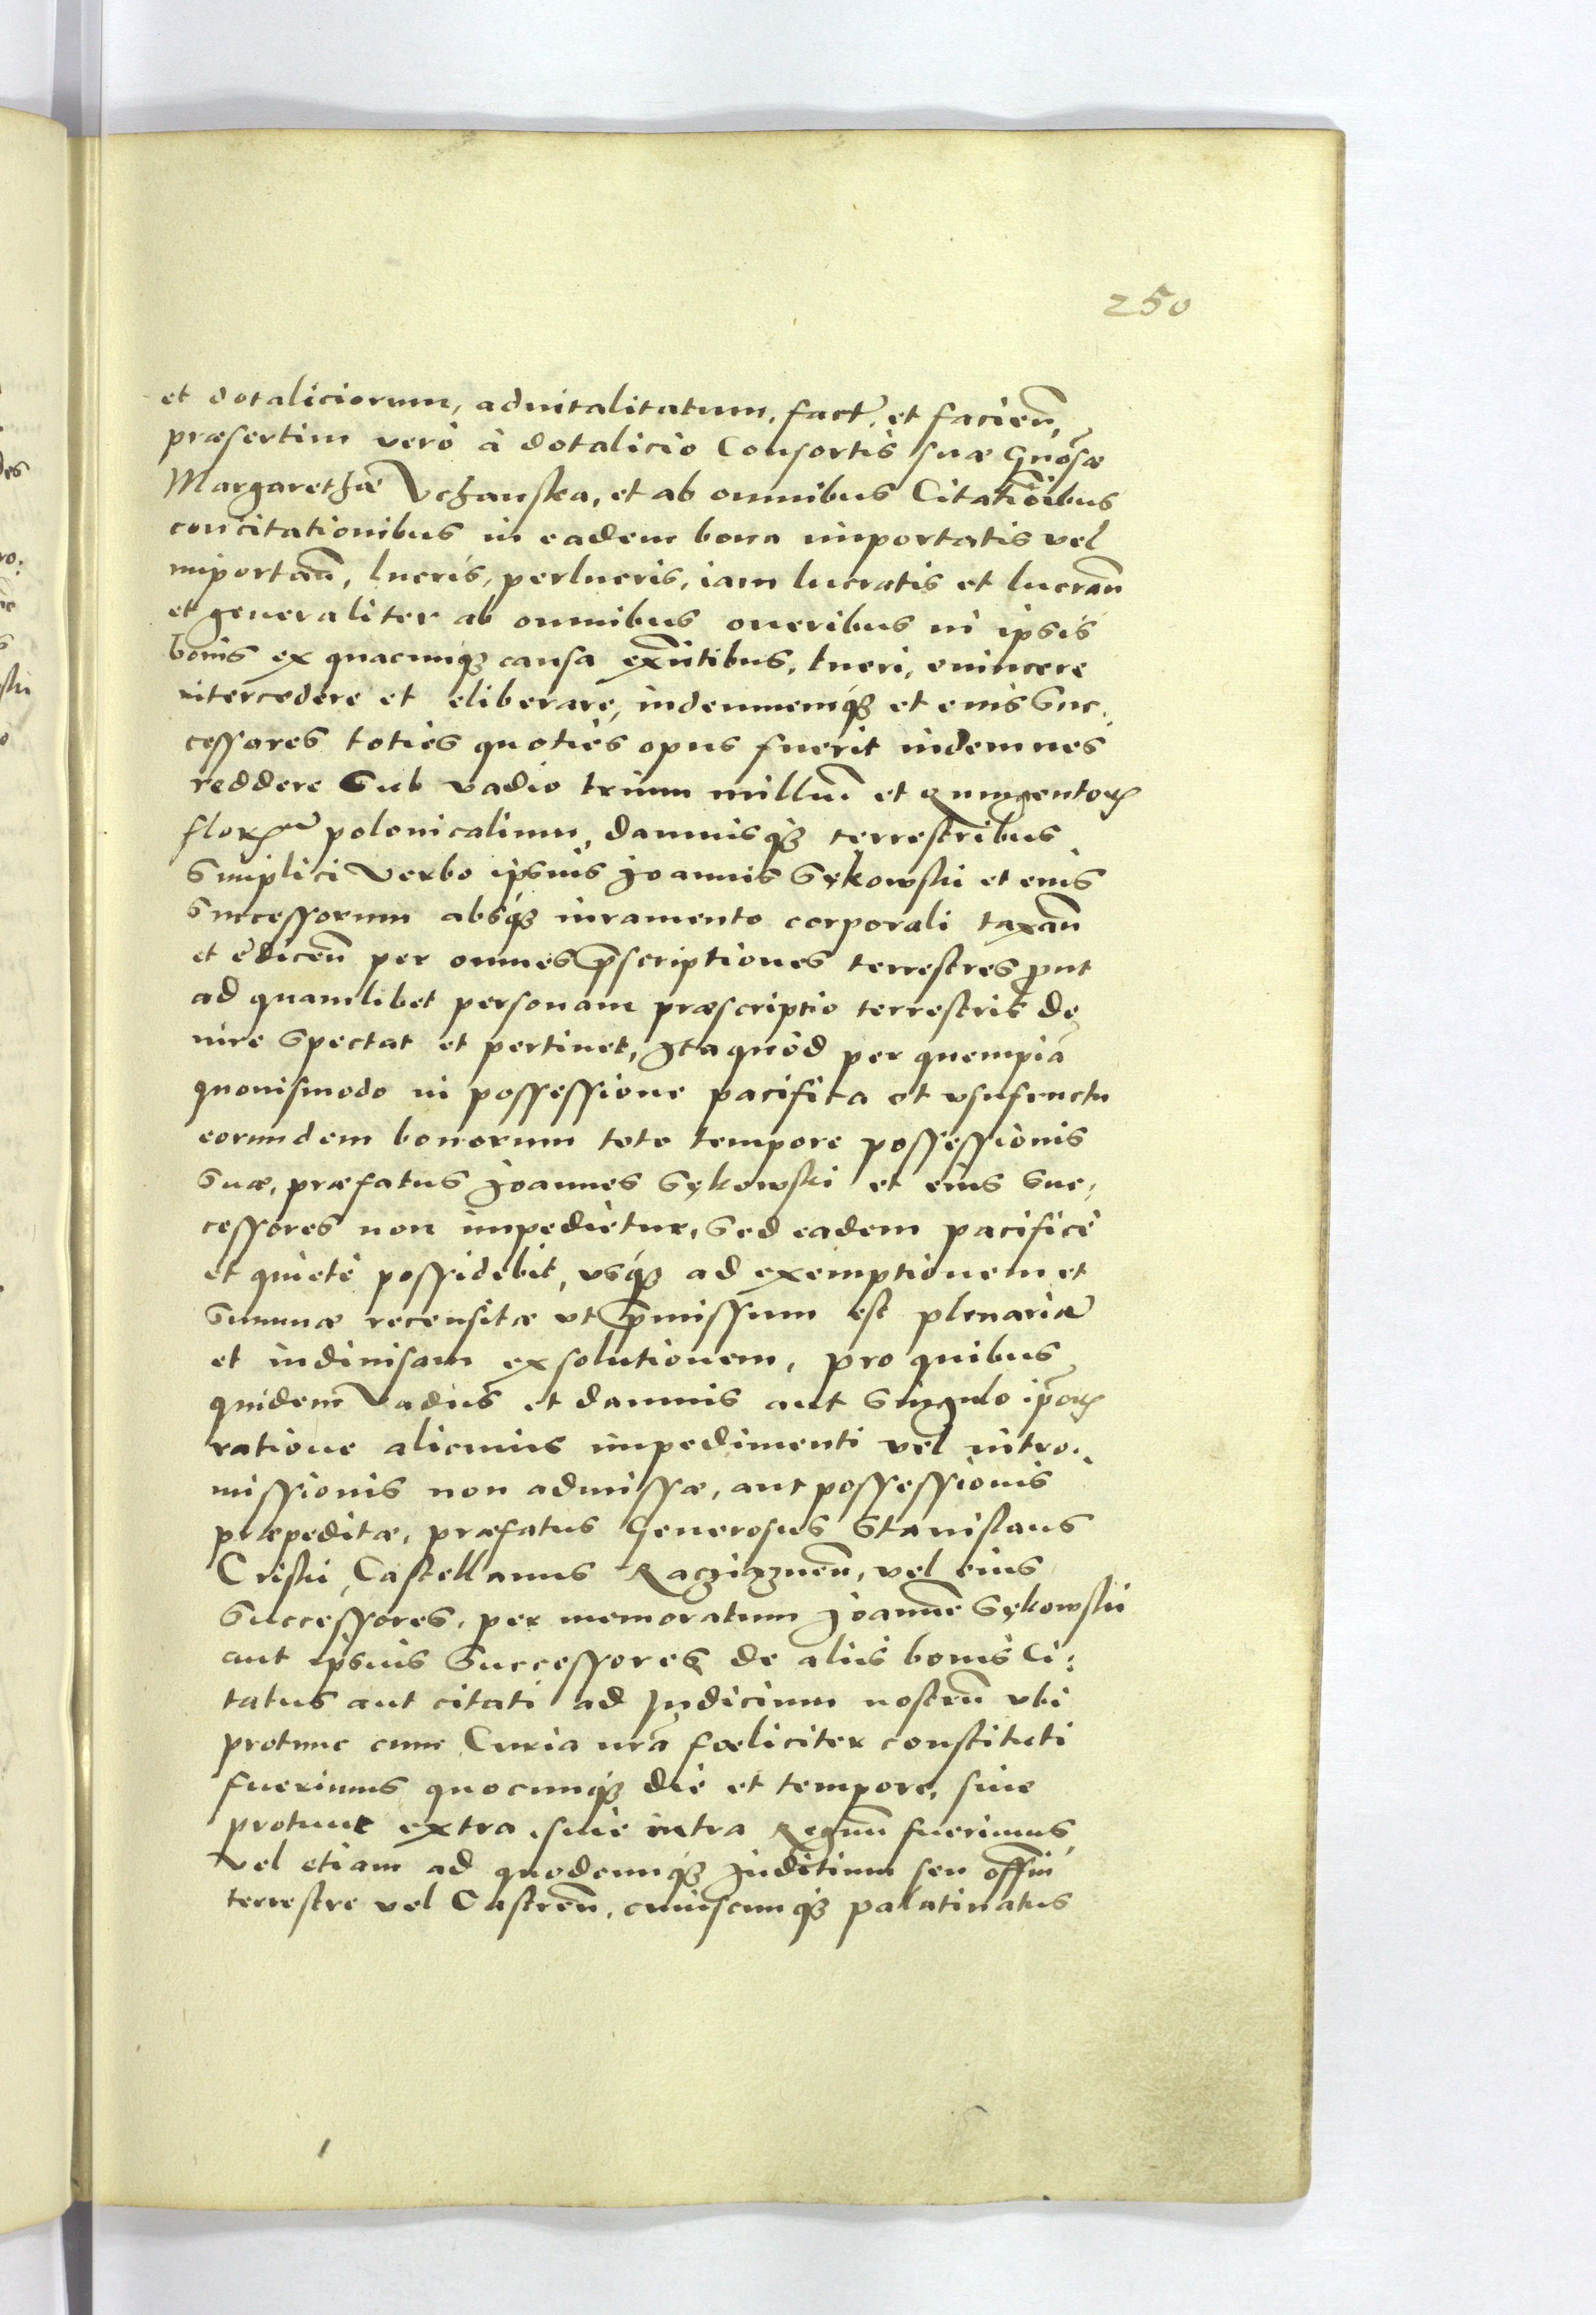 250
et dotaliciorum, aduitalitatum, fact̃, et facień,
præsertim verò à dotalicio Consortis suæ Gnõsæ
Margarethæ Vchanska, et ab omnibus Citatiõibus
concitationibus in eadem bona importatis vel
importań, lucris, perlucris, iam lucratis et lucrań
et generaliter ab omnibus oneribus in ipsis
bonis ex quacunq₃ causa exñtibus, tueri, euincere
intercedere et eliberare, indemnemq₃ et eius Suc:
cessores toties quoties opus fuerit indemnes
reddere Sub vadio trium milliũ et Quingentoꝝ
floꝝ polonicalium, damnisq₃ terrestribus
Simplici Verbo ipsius Joannis Sękowski et eius
Successorum absq₃ iuramento corporali taxań
et ediceń per omnes p̃scriptiones terrestres ꝓut
ad quamlibet personam præscriptio terrestris de
iure Spectat et pertinet, Ita quòd per quempiã
quouismodo in possessione pacifica et vsufructu
eorundem bonorum toto tempore possessionis
Suæ, præfatus Joannes Sękowski et eius Suc:
cessores non impedietur, Sed eadem pacificè
et quietè possidebit, vsq₃ ad exemptionem et
Summæ recensitæ vt p̃missum est plenariã
et indiuisam exsolutionem, pro quibus
quidem Vadiis et damnis aut Singulo ip̃oꝝ
ratione alicuius impedimenti vel intro:
missionis non admissæ, aut possessionis
præpeditæ, præfatus Generosus Stanislaus
Criski, Castellanus Raczizzneń, vel eius
Successores, per memoratum Joannẽ Sękowski
aut ipsius Successores de aliis bonis Ci:
tatus aut citati ad Judicium nostrũ vbi
protunc cum Curia nrã fœliciter constituti
fuerimus quocunq₃ die et tempore, siue
protunc extra, siue intra Regnũ fuerimus,
vel etiam ad quodcunq₃ Juditium seu offiñ
terrestre vel Castreń, cuiuscunq₃ palatinatus